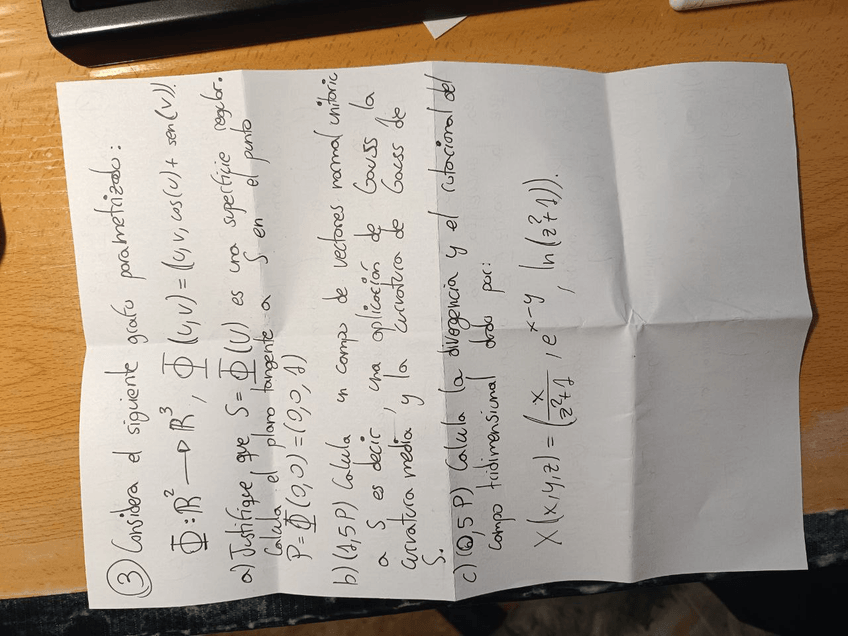 ③ Considera el siguiente grafo parametrizado:
Φ: ℝ² → ℝ³, Φ(u,v) = (u,v,cos(u) + sen(v)).
a) Justifique que S = Φ(U) es una superficie regular.
Calcula el plano tangente a S en el punto
P = Φ(0,0) = (0,0,1)
b) (1,5 P) Calcula un campo de vectores normal unitario
a S es decir, una aplicación de Gauss la
curvatura media y la curvatura de Gauss de
S.
c) (0,5 P) Calcula la divergencia y el rotacional del
campo tridimensional dado por:
X(x,y,z) = (x/(z²+1), e^(x-y), ln(z²+1)).